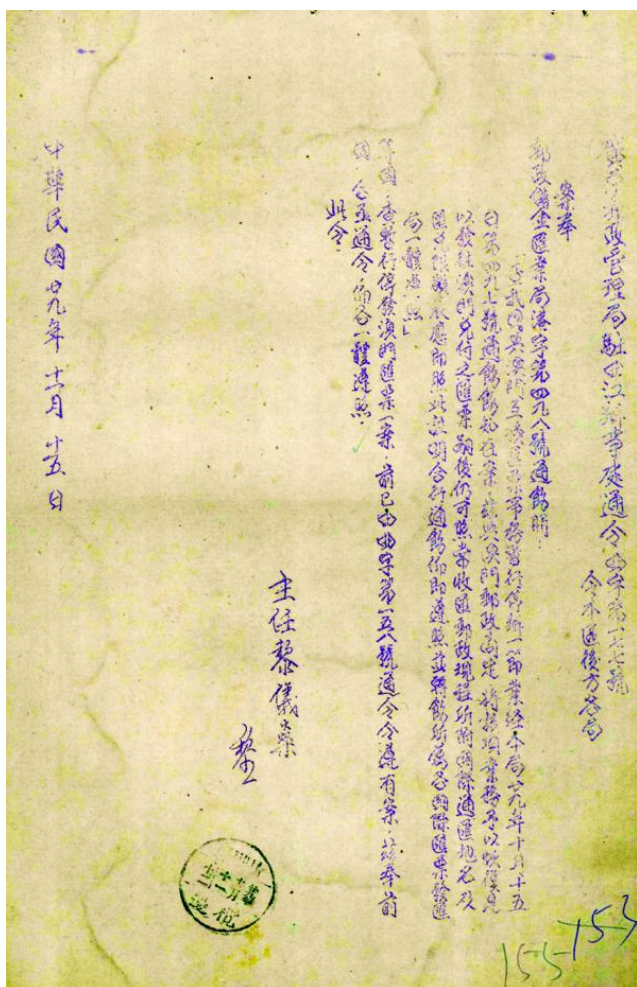 郵政管理局駐曲江辦事處通令曲字第一六七號
令本區後方各局
案奉
郵政儲金匯業局滬字第四九八號通飭開
「查我國與澳門互換匯票事務暫行停辦一節業經本局廿九年十月十五
日第四九七號通飭飭知在案茲與澳門郵政商定將該項業務予以恢復凡
以發往澳門兌付之匯票嗣後仍可照常收匯郵政現行所開國際通匯地名及
匯兌限額表應即照此註明合行通飭仰即遵照並轉飭所屬各國際匯票發匯
局一體遵照」
等因查暫行停發澳門匯票一案前已由曲字第一五八號通令令遵有案茲奉前
因合亟通令仰各一體遵照
此令
主任黎儀燊
黎
中華民國廿九年十一月廿五日
153
155